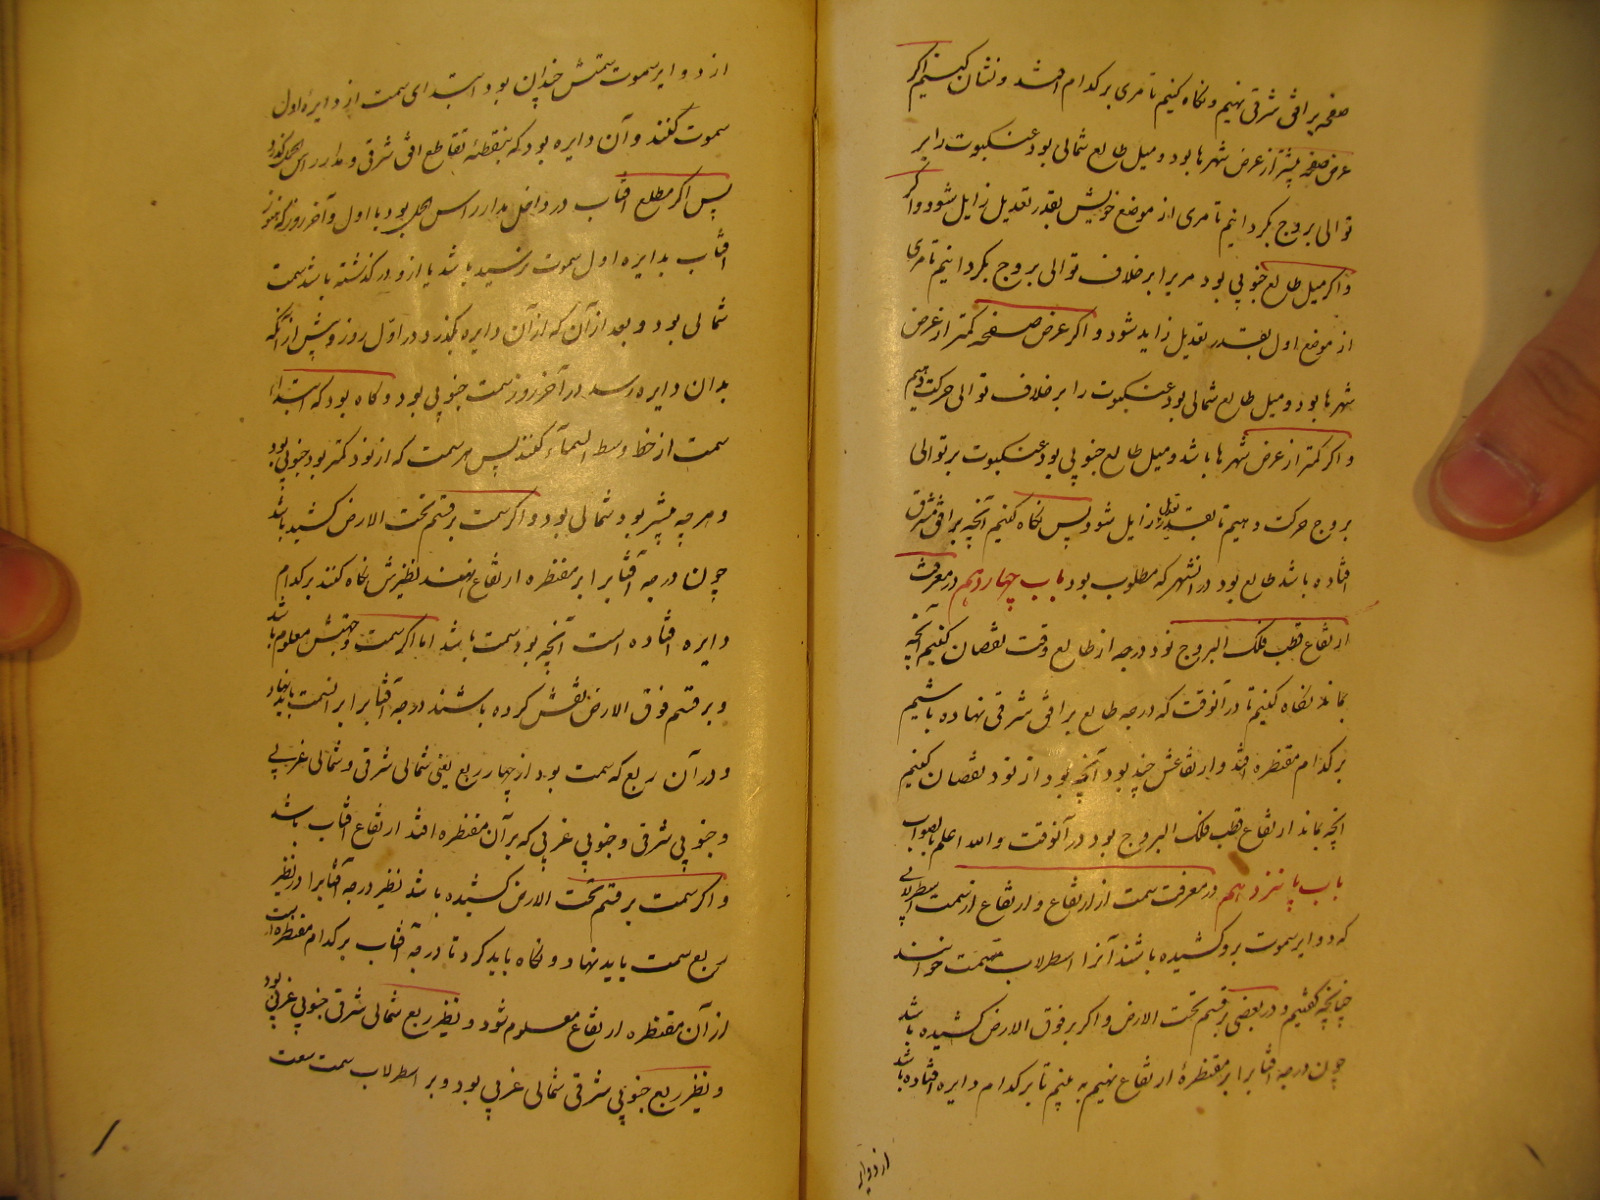 صفحه بر افق شرقی نهیم و نگاه کنیم تا مری بر کدام افتد و نشان کنیم اگر
عرض صفحه بیشتر از عرض شهر ما بود و میل طالع شمالی بود عنکبوت را بر
توالی بروج بگردانیم تا مری از موضع خویش بقدر تعدیل زایل شود و اگر
و اگر میل طالع جنوبی بود مری را بر خلاف توالی بروج بگردانیم تا مری
از موضع اول بقدر تعدیل زاید شود و اگر عرض صفحه کمتر از عرض
شهر ما بود و میل طالع شمالی بود عنکبوت را بر خلاف توالی حرکت دهیم
و اگر کمتر از عرض شهر ما باشد و میل طالع جنوبی بود عنکبوت بر توالی
بروج حرکت دهیم تا بقدر تعدیل زایل شود پس نگاه کنیم آنچه بر افق مشرق
افتاده باشد طالع بود در آنشهر که مطلوب بود باب چهاردهم در معرفت
ارتفاع قطب فلک البروج نود درجه از طالع وقت نقصان کنیم آنچه
بماند نگاه کنیم تا در آنوقت که درجه طالع بر افق شرقی نهاده باشیم
بر کدام مقنطره افتد و ارتفاعش چند بود آنچه بود از نود نقصان کنیم
آنچه بماند ارتفاع قطب فلک البروج بود در آنوقت والله اعلم بالصواب
باب پانزدهم در معرفت سمت از ارتفاع و ارتفاع از سمت اسطرلابی
که دوایر سموت برو کشیده باشند آنرا اسطرلاب مسمت خوانند
چنانچه گفتیم و در بعضی بر قسم تحت الارض و اگر بر فوق الارض کشیده باشد
چون درجه آفتاب را بر مقنطرهٔ ارتفاع نهیم به بینیم تا بر کدام دایره افتاده باشد
از دوایر
از دوایر سموت سمتش چندان بود ابتدای سمت از دایرهٔ اول
سموت کنند و آن دایره بود که بنقطهٔ تقاطع افق شرقی و مدار راس الحمل گذرد
پس اگر مطلع آفتاب در داخل مدار راس الحمل بود با اول و آخر روز که هنوز
آفتاب بدایره اول سموت نرسیده باشد یا ازو در گذشته باشد سمت
شمالی بود و بعد از آن که از آن دایره بگذرد در اول روز و پیش از آنکه
بدان دایره رسد در آخر روز سمت جنوبی بود و گاه بود که ابتدا
سمت از خط وسط السمآء کنند پس هر سمت که از نود کمتر بود جنوبی بود
و هر چه بیشتر بود شمالی بود و اگر سمت بر قسم تحت الارض کشیده باشد
چون درجه آفتاب را بر مقنطره ارتفاع نهند نظیرش نگاه کنند بر کدام
دایره افتاده است آنچه بود سمت باشد اما اگر سمت و جهتش معلوم باشد
و بر قسم فوق الارض نقش کرده باشند درجه آفتاب را بر آن سمت باید نهاد
و در آن ربع که سمت بود از چهار ربع یعنی شمالی شرقی و شمالی غربی
و جنوبی شرقی و جنوبی غربی که بر آن مقنطره افتد ارتفاع آفتاب باشد
و اگر سمت بر قسم تحت الارض کشیده باشد نظیر درجه آفتاب را در نظیر
ربع سمت باید نهاد و نگاه باید کرد تا درجه آفتاب بر کدام مقنطره است
از آن مقنطره ارتفاع معلوم شود و نظیر ربع شمالی شرقی جنوبی غربی بود
و نظیر ربع جنوبی شرقی شمالی غربی بود و بر اسطرلاب سمت سعت